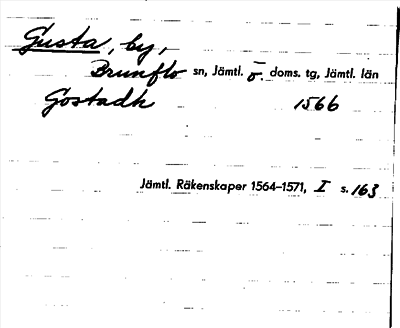 Gusta, by,
Brunflo sn, Jämtl. ö. doms. tg, Jämtl. län
Gostadh 1566
Jämtl. Räkenskaper 1564–1571, I s. 163